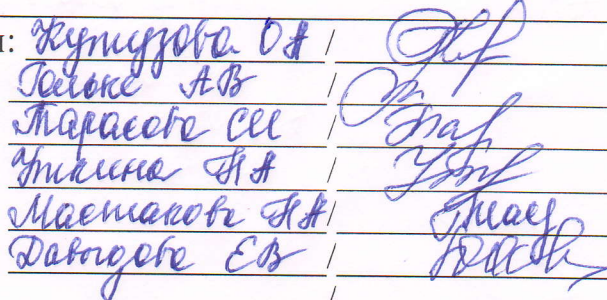 : Кутузова ОА /
Гольке АВ /
Тарасова СИ /
Уткина НА /
Мастакова НА /
Давыдова ЕВ /
/